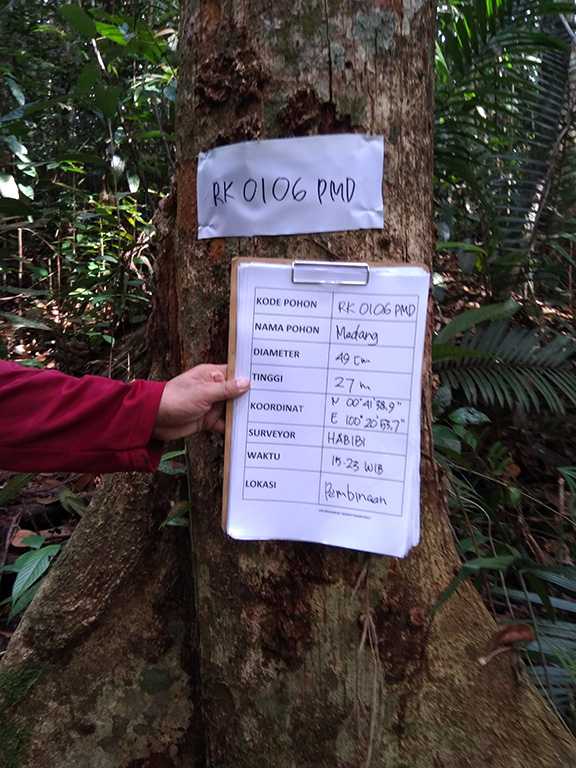 RK 0106 PMD
KODE POHON RK 0106 PMD
NAMA POHON Medang
DIAMETER 49 cm
TINGGI 27 m
KOORDINAT N 00°41'38,9"
E 100°20'53,7"
SURVEYOR HABIBI
WAKTU 15.23 WIB
LOKASI Pembinaan